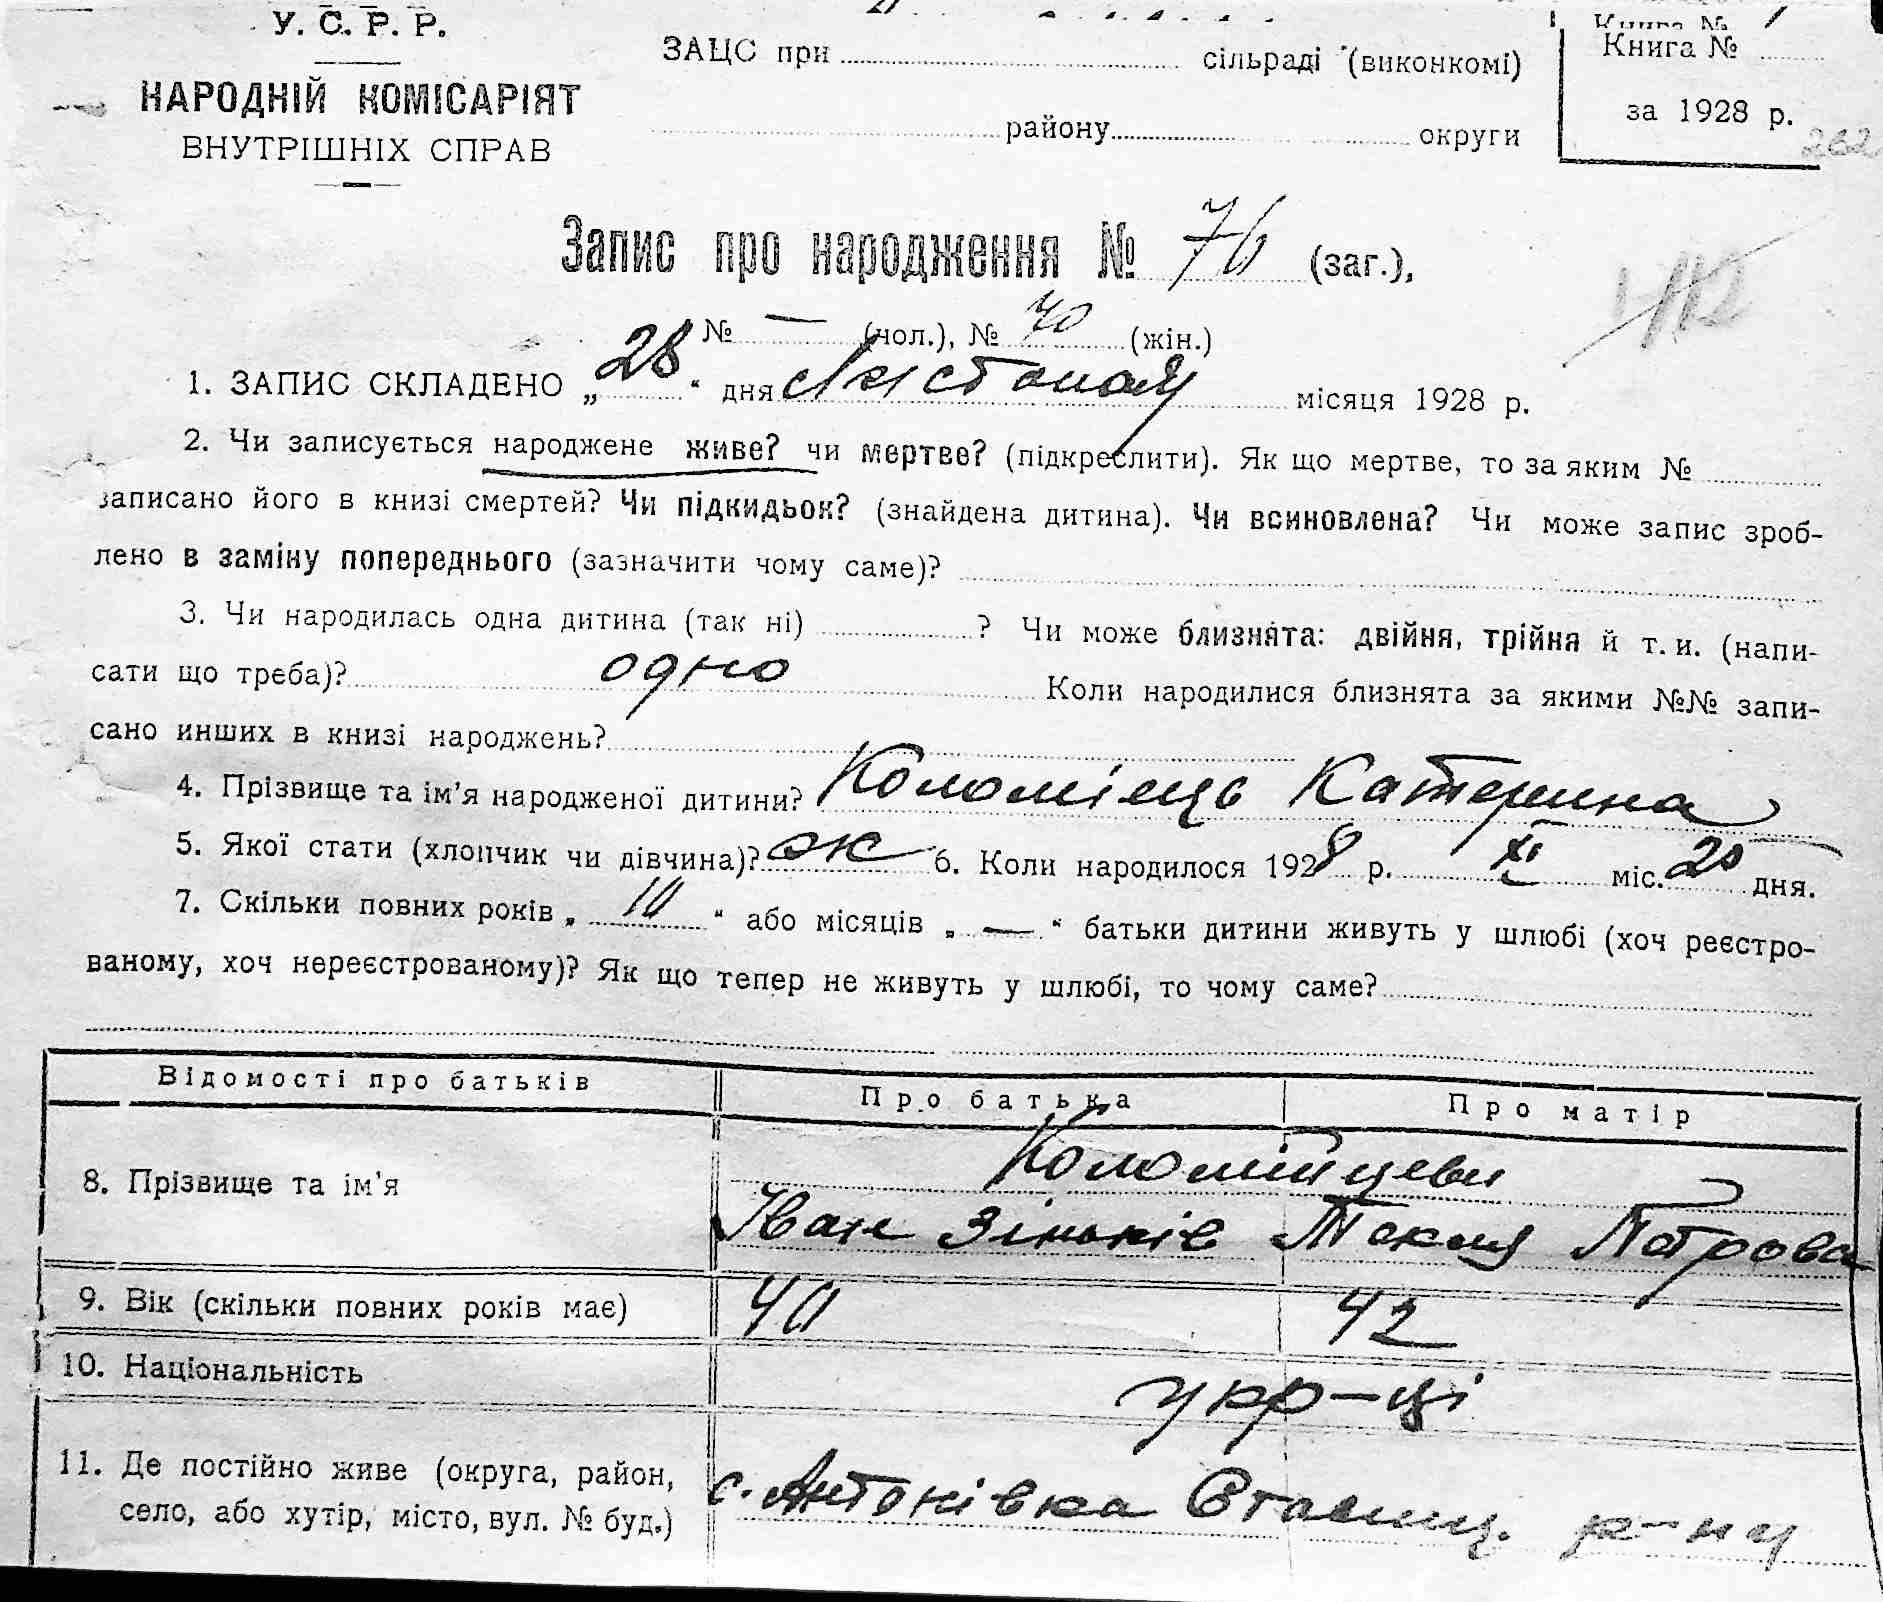 У. С. Р. Р.
НАРОДНІЙ КОМІСАРІЯТ
ВНУТРІШНІХ СПРАВ
ЗАЦС при сільраді (виконкомі)
району округи
Книга №
Книга №
за 1928 р.
262
Запис про народження № 76 (заг.),
№ — (чол.), № 40 (жін.)
1. ЗАПИС СКЛАДЕНО „28“ дня Листопаду місяця 1928 р.
2. Чи записується народжене живе? чи мертве? (підкреслити). Як що мертве, то за яким №
записано його в книзі смертей? Чи підкидьок? (знайдена дитина). Чи всиновлена? Чи може запис зроб-
лено в заміну попереднього (зазначити чому саме)?
3. Чи народилась одна дитина (так ні) ? Чи може близнята: двійня, трійня й т. и. (напи-
сати що треба)? одно Коли народилися близнята за якими №№ запи-
сано инших в книзі народжень?
4. Прізвище та ім'я народженої дитини? Коломієць Катерина
5. Якої стати (хлопчик чи дівчина)? ж 6. Коли народилося 1928 р. XI міс. 20 дня.
7. Скільки повних років „ 10 “ або місяців „ — “ батьки дитини живуть у шлюбі (хоч реєстро-
ваному, хоч нереєстрованому)? Як що тепер не живуть у шлюбі, то чому саме?
Відомості про батьків Про батька Про матір
8. Прізвище та ім'я Коломійцеви
Іван Зіньків Текля Петрова
9. Вік (скільки повних років має) 40 42
10. Національність укр-ці
11. Де постійно живе (округа, район,
село, або хутір, місто, вул. № буд.) с. Антонівка Ставищ. р-ну